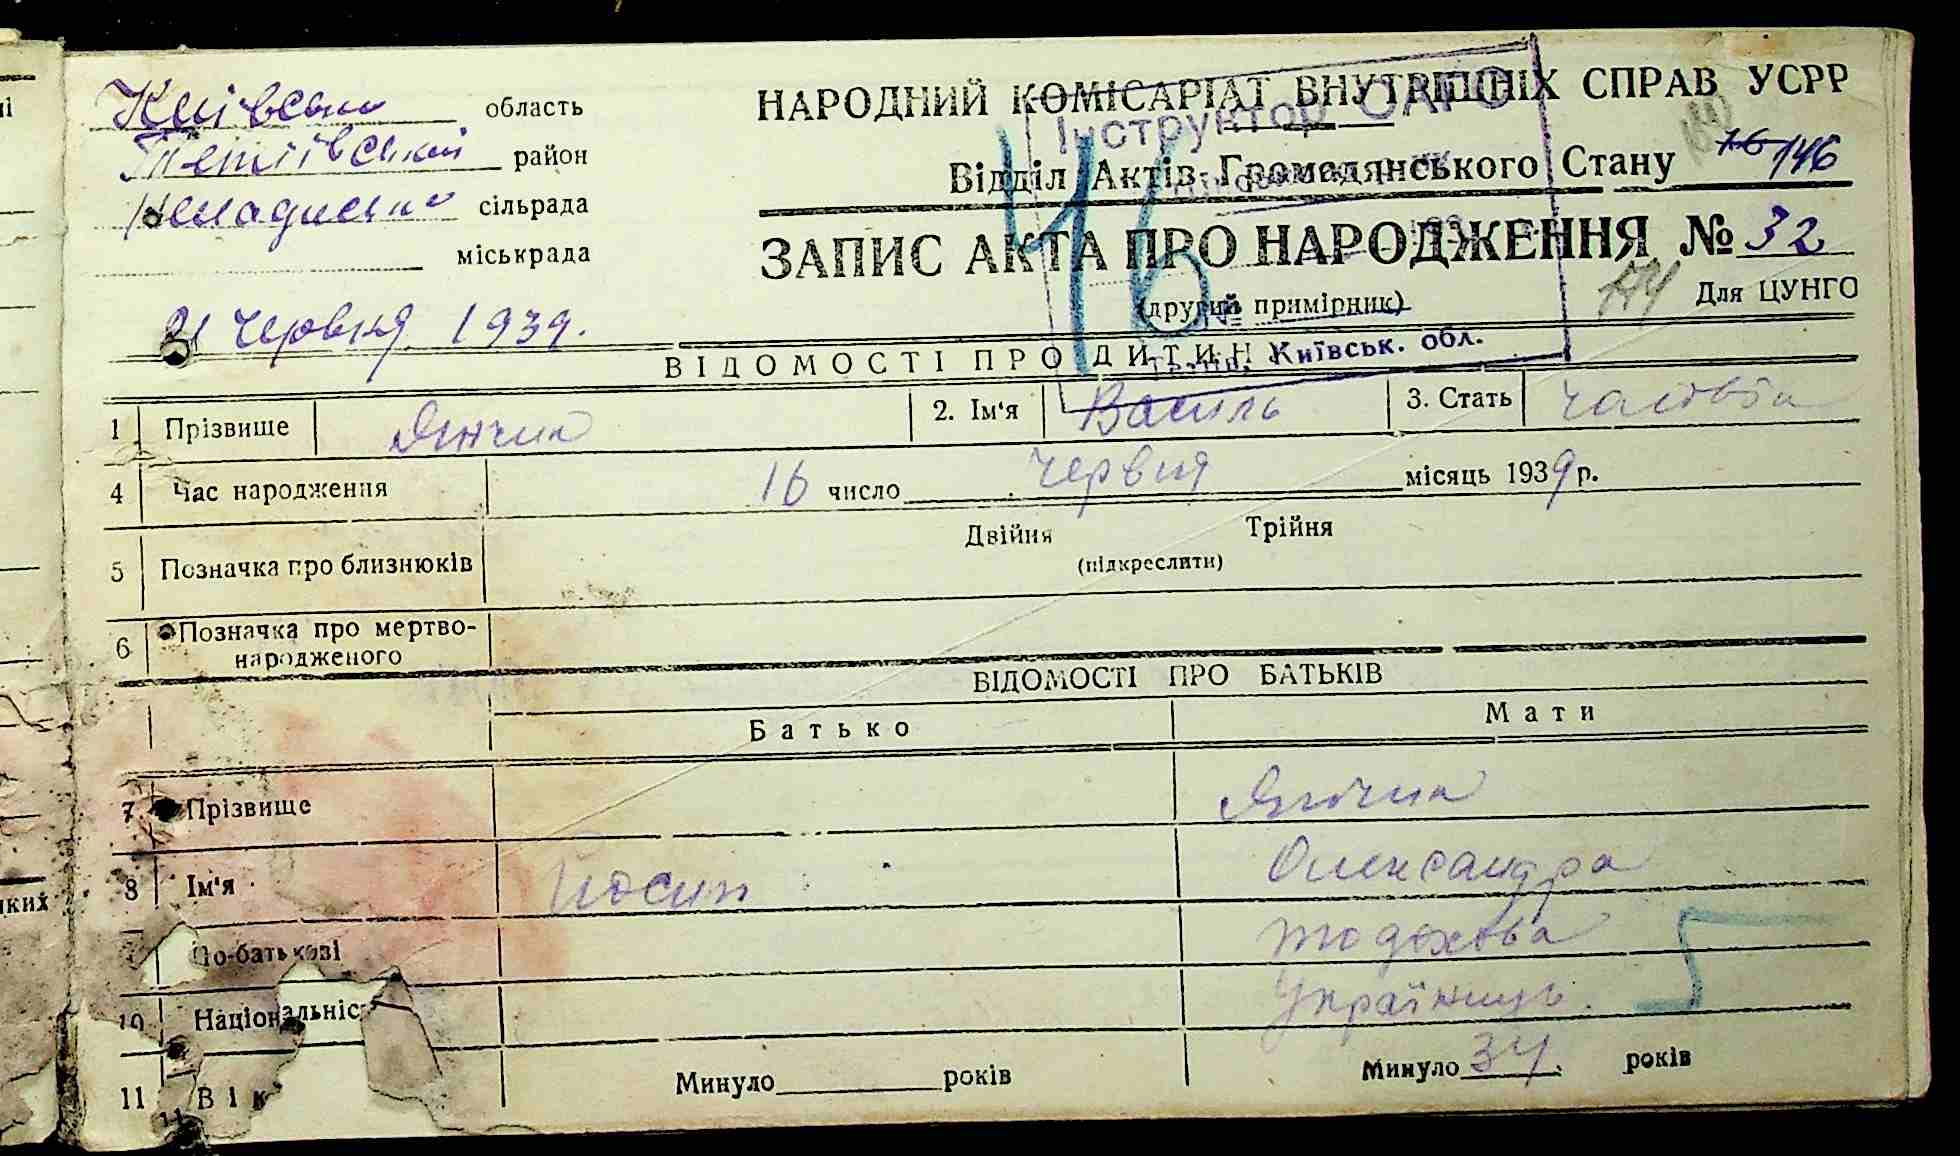 Київська область
Тетіївський район
сільрада
міськрада
21 Червня 1939.
НАРОДНИЙ КОМІСАРІАТ ВНУТРІШНІХ СПРАВ УСРР
Відділ Актів Громадянського Стану 16/146
ЗАПИС АКТА ПРО НАРОДЖЕННЯ № 32
(другий примірник)
Для ЦУНГО
Інструктор ОАГС
Київськ. обл.
ВІДОМОСТІ ПРО ДИТИН
1 Прізвище Янчик 2. Ім'я Василь 3. Стать
4 Час народження 16 число Червня місяць 1939 р.
5 Позначка про близнюків Двійня Трійня
(підкреслити)
6 Позначка про мертво-
народженого
ВІДОМОСТІ ПРО БАТЬКІВ
Батько Мати
7 Прізвище Янчик
8 Ім'я Йосип Олександра
По-батькові
10 Національніс Українець.
11 Вік Минуло років Минуло 34 років